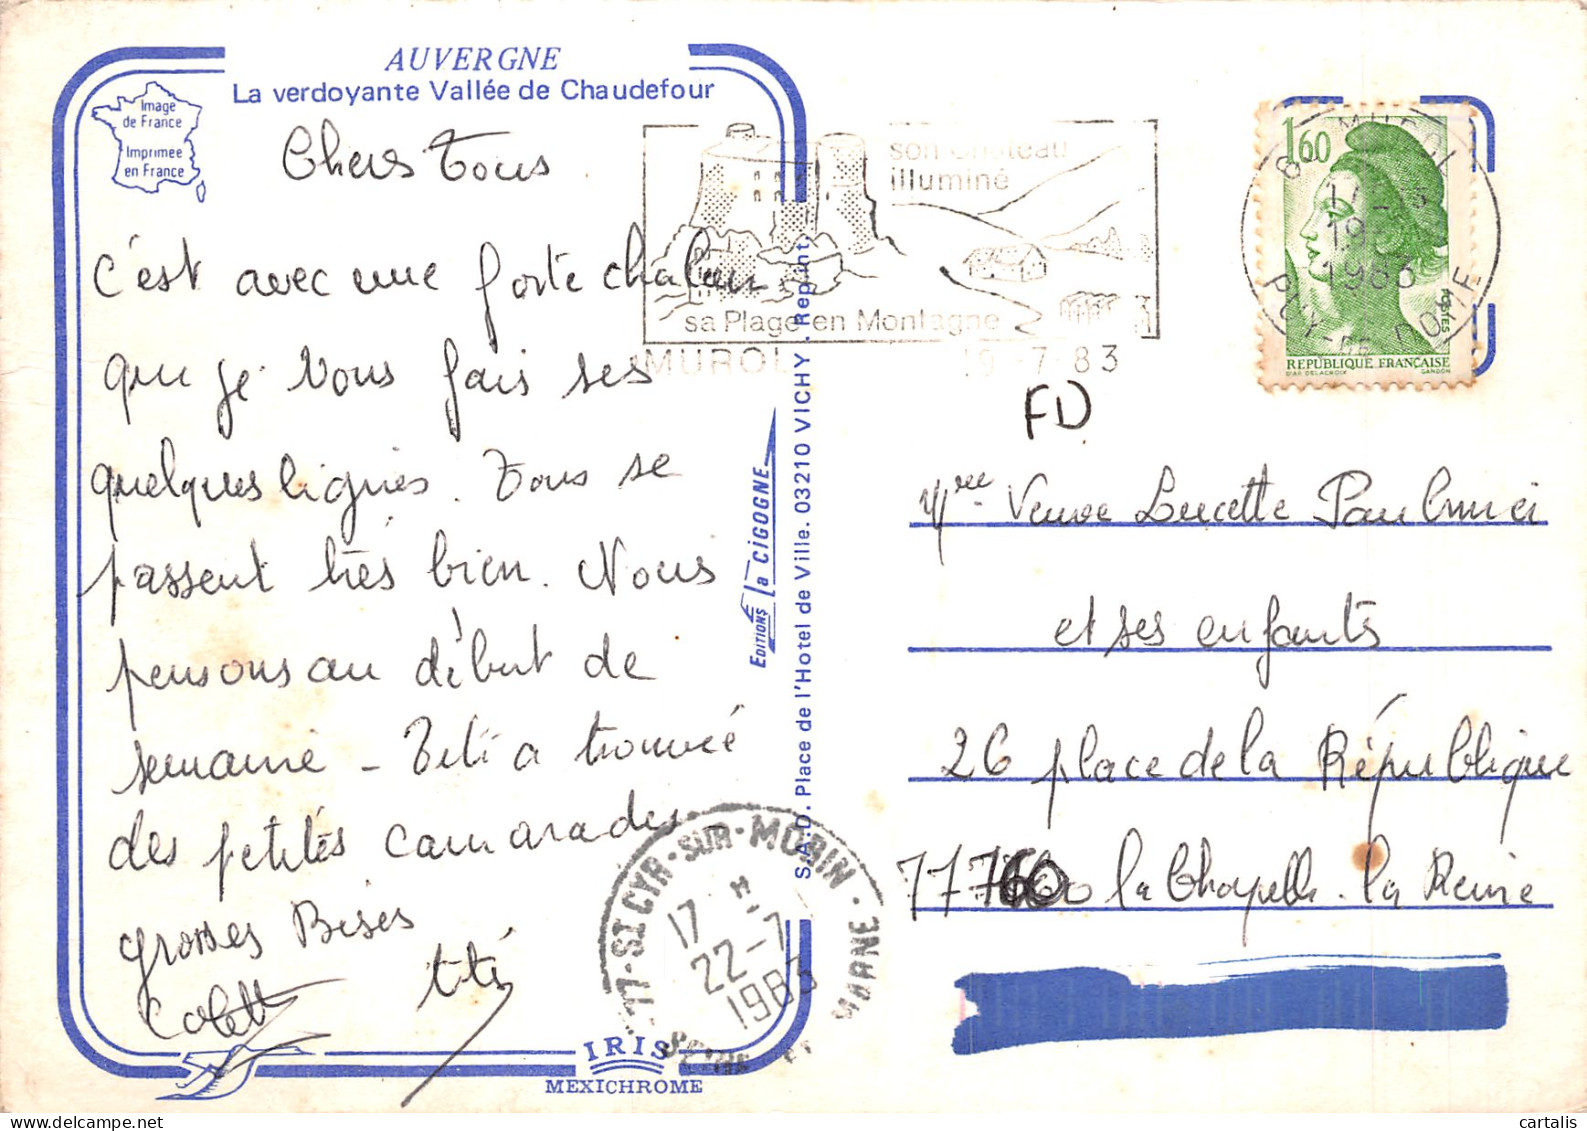 AUVERGNE
La verdoyante Vallée de Chaudefour
Image
de France
Imprimée
en France
Chers Tous
c'est avec une forte chaleur
que je vous fais ses
quelques lignes. Tous se
passent très bien. Nous
pensons au début de
semaine - Titi a trouvé
des petites camarades
grosses Bises
Colette Titi
IRIS
MEXICHROME
EDITIONS la CIGOGNE
S.A.D. Place de l'Hotel de Ville. 03210 VICHY. Reprint
son Château
illuminé
sa Plage en Montagne
MUROL 19-7-83
MUROL
17
19
1983
PUY-DE-DOME
1,60
POSTES
REPUBLIQUE FRANÇAISE
D'AP. DELACROIX GANDON
FD
Veuve Lucette
et ses enfants
26 place de la République
77760 la Chapelle-la Reine
77-ST CYR-SUR-MORIN
17 H
22-7
1983
SEINE ET MARNE
cartalis